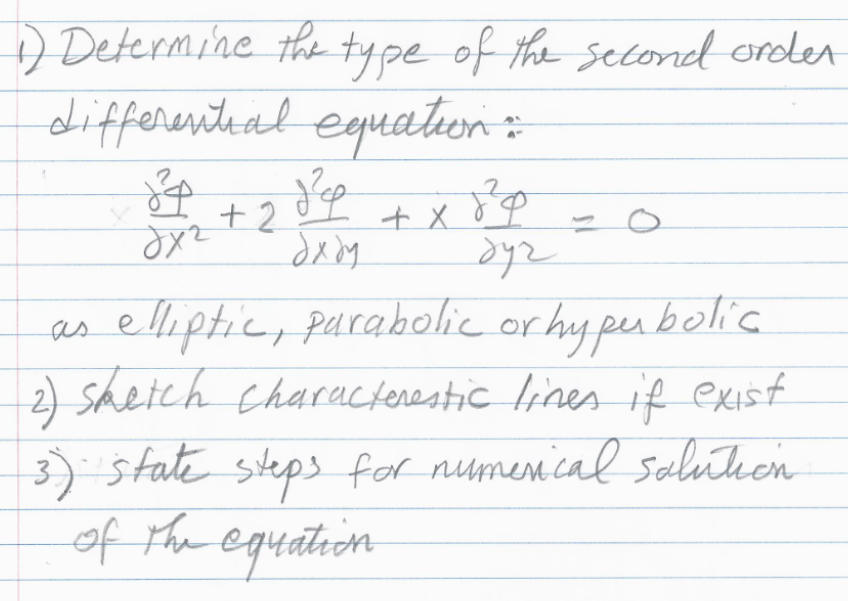 1) Determine the type of the second order
differential equation:
∂²φ/∂x² + 2 ∂²φ/∂x∂y + x ∂²φ/∂y² = 0
as elliptic, parabolic or hyperbolic
2) sketch characterestic lines if exist
3) state steps for numerical solution
of the equation